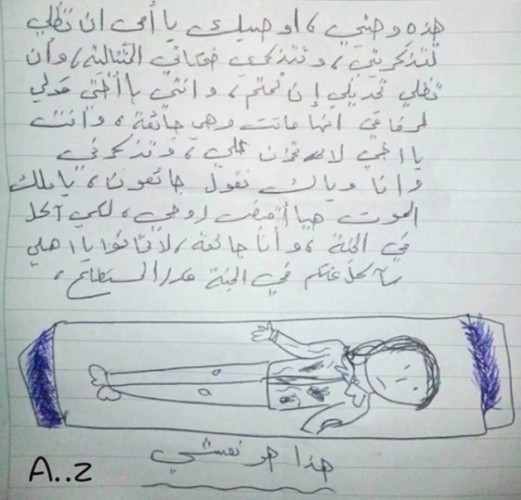 هذه وصيتي، اوصيك يا أمي ان تظلي
تتذكريني، وتتذكري ضحكاتي المتتالية، وأن
تظلي تحدثيلي إن نمتم، وانتي يا أختي قولي
لرفاقي انها ماتت وهي جائعة، وأنت
يا اخي لا تحزن علي، وتذكرني
وانا وياك نقول جائعون، يا ملك
الموت هيا أقبض روحي، لكي آكل
في الجنة، وأنا جائعة، لا تخافوا يا اهلي
سآكل عنكم في الجنة قدر المستطاع،
هذا هو نعشي
A..Z